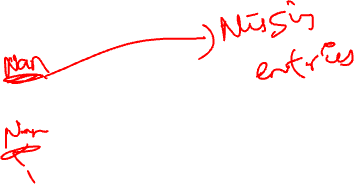 Nan
Missing
entries
Nan